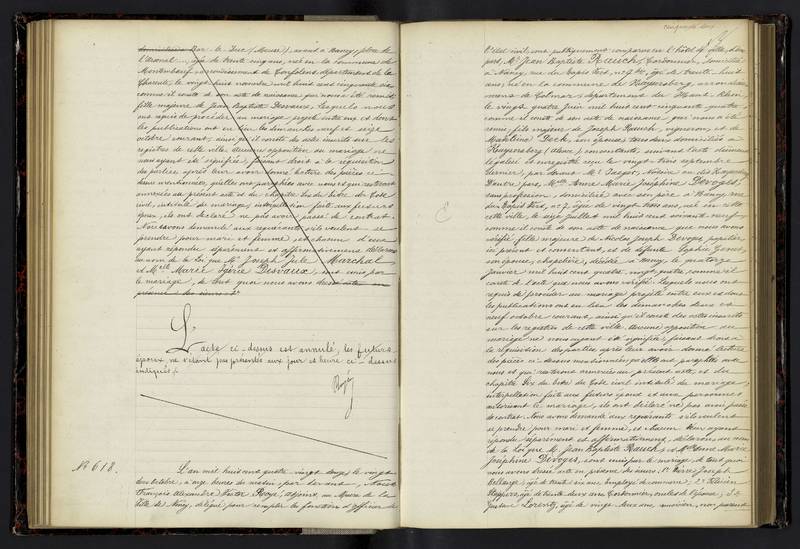 domiciliée Bar-le-Duc (Meuse), avant à Nancy, place de
l'Arsenal, âgée de trente cinq ans, née en la commune de
Montembœuf, arrondissement de Confolens, département de la
Charente, le vingt huit novembre mil huit cent cinquante six
comme il conste de son acte de naissance que nous a été remis
fille majeure de Jean Baptiste Desvaux. Lesquels nous
ont requis de procéder au mariage projeté entre eux et dont
les publications ont eu lieu les dimanches neuf et seize
octobre courant, ainsi qu'il conste des actes inscrits sur les
registres de cette ville. Aucune opposition au mariage ne
nous ayant été signifiée, faisant droit à la réquisition
des parties, après leur avoir donné lecture des pièces ci-
dessus mentionnées, qu'elles ont paraphées avec nous et qui resteront
annexées au présent acte et du chapitre Six du titre du Code
civil, intitulé du mariage, interpellation faite aux futurs
époux, ils ont déclaré ne pas avoir passé de contrat.
Nous avons demandé aux requérants s'ils veulent se
prendre pour mari et femme, et chacun d'eux
ayant répondu séparément et affirmativement, déclarons
au nom de la loi que Mr Joseph Jule Marchal
et Melle Marie Égérie Desvaux, sont unis par
le mariage, de tout quoi nous avons dressé acte en
présence des sieurs: 1°
L'acte ci-dessus est annulé, les futurs
époux ne s'étant pas présentés aux jour et heure ci-dessus
indiqués./.
Royé
N° 618.
L'an mil huit cent quatre vingt douze, le vingt
deux octobre, à onze heures du matin, par devant, Nous
François Alexandre Victor Royé, adjoint au Maire de la
Ville de Nancy, délégué pour remplir les fonctions d'officier de
cinquante deux
l'état civil, sont publiquement comparus en l'hôtel de ville, d'une
part, Mr Jean Baptiste Rauch, Cordonnier, domicilié
à Nancy, rue du Tapis Vert, n° 7 bis, âgé de trente huit
ans, né en la commune de Kaysersberg, arrondisse-
ment de Colmar, département du Haut-Rhin
le vingt quatre Juin mil huit cent cinquante quatre,
comme il conste de son acte de naissance, que nous a été
remis, fils majeur de Joseph Rauch, vigneron, et de
Madeleine Doch, son épouse, tous deux domiciliés à
Kaysersberg (Alsace), consentants, suivant acte dûment
légalisé et enregistré reçu le vingt-trois septembre
dernier, par devant Me Jaspar, Notaire au dit Kaysersberg
D'autre part, Melle Anne Marie Joséphine Devoges,
sans profession, domiciliée avec son père à Nancy, rue
du Tapis Vert, n° 7, âgée de vingt trois ans, née en cette
cette ville, le seize Juillet mil huit cent soixante neuf
comme il conste de son acte de naissance que nous avons
vérifié, fille majeure de Nicolas Joseph Devoges, papetier,
ici présent et consentant, et de défunte Sophie
son épouse, chapelière, décédée à Nancy, le quatorze
Janvier mil huit cent quatre vingt quatre, comme il
conste de l'acte que nous avons vérifié. Lesquels nous ont
requis de procéder au mariage projeté entre eux et dont
les publications ont eu lieu les dimanches deux et
neuf octobre courant, ainsi qu'il conste des actes inscrits
sur les registres de cette ville. Aucune opposition au
mariage ne nous ayant été signifiée, faisant droit à
la réquisition des parties, après leur avoir donné lecture
des pièces ci-dessus mentionnées, qu'elles ont paraphées avec
nous et qui resteront annexées au présent acte, et du
chapitre Six du titre du Code civil intitulé du mariage,
interpellation faite aux futurs époux et aux personnes
autorisant le mariage, ils ont déclaré ne pas avoir passé
de contrat. Nous avons demandé aux requérants s'ils veulent
se prendre pour mari et femme, et chacun d'eux ayant
répondu séparément et affirmativement, déclarons au nom
de la loi que Mr Jean Baptiste Rauch, et Melle Anne Marie
Joséphine Devoges, sont unis par le mariage, de tout quoi
nous avons dressé acte en présence des sieurs: 1° Pierre Joseph
âgé de trente six ans, Employé de commerce; 2°
âgé de trente deux ans, Cordonnier, oncles de l'épouse; 3°
Gustave Lorentz, âgé de vingt deux ans, non parent